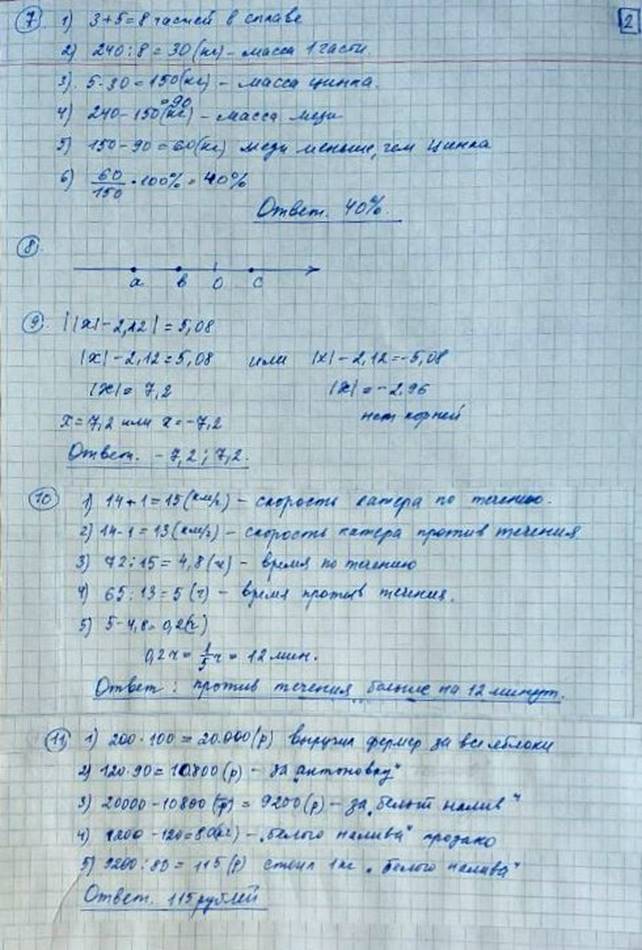 2
7 1) 3+5=8 частей в сплаве
2) 240:8=30(кг) – масса 1 части.
3) 5·30=150(кг) – масса цинка.
4) 240-150=90(кг) – масса меди
5) 150-90=60(кг) меди меньше, чем цинка
6) 60/150 · 100% = 40%
Ответ. 40%.
8.
a b 0 c
9. ||x|-2,12|=5,08
|x|-2,12=5,08 или |x|-2,12=-5,08
|x|=7,2 |x|=-2,96
x=7,2 или x=-7,2 нет корней
Ответ. -7,2; 7,2.
10 1) 14+1=15(км/ч) – скорость катера по течению.
2) 14-1=13(км/ч) – скорость катера против течения
3) 72:15=4,8(ч) – время по течению
4) 65:13=5(ч) – время против течения.
5) 5-4,8=0,2(ч)
0,2ч = 1/5ч = 12 мин.
Ответ: против течения больше на 12 минут.
11 1) 200·100=20.000(р) выручил фермер за все яблоки
2) 120·90=10800(р) – за „антоновку"
3) 20000-10800(р)=9200(р) – за „белый налив"
4) -120=80(кг) – „белого налива" продано
5) 9200:80=115(р) стоил 1 кг „белого налива"
Ответ. 115 рублей